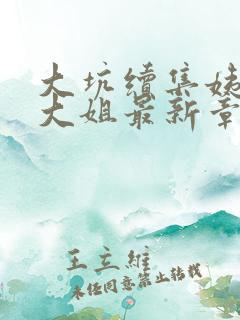 大坑續集姊
大姐最新章
王立維
未经同意禁止转载